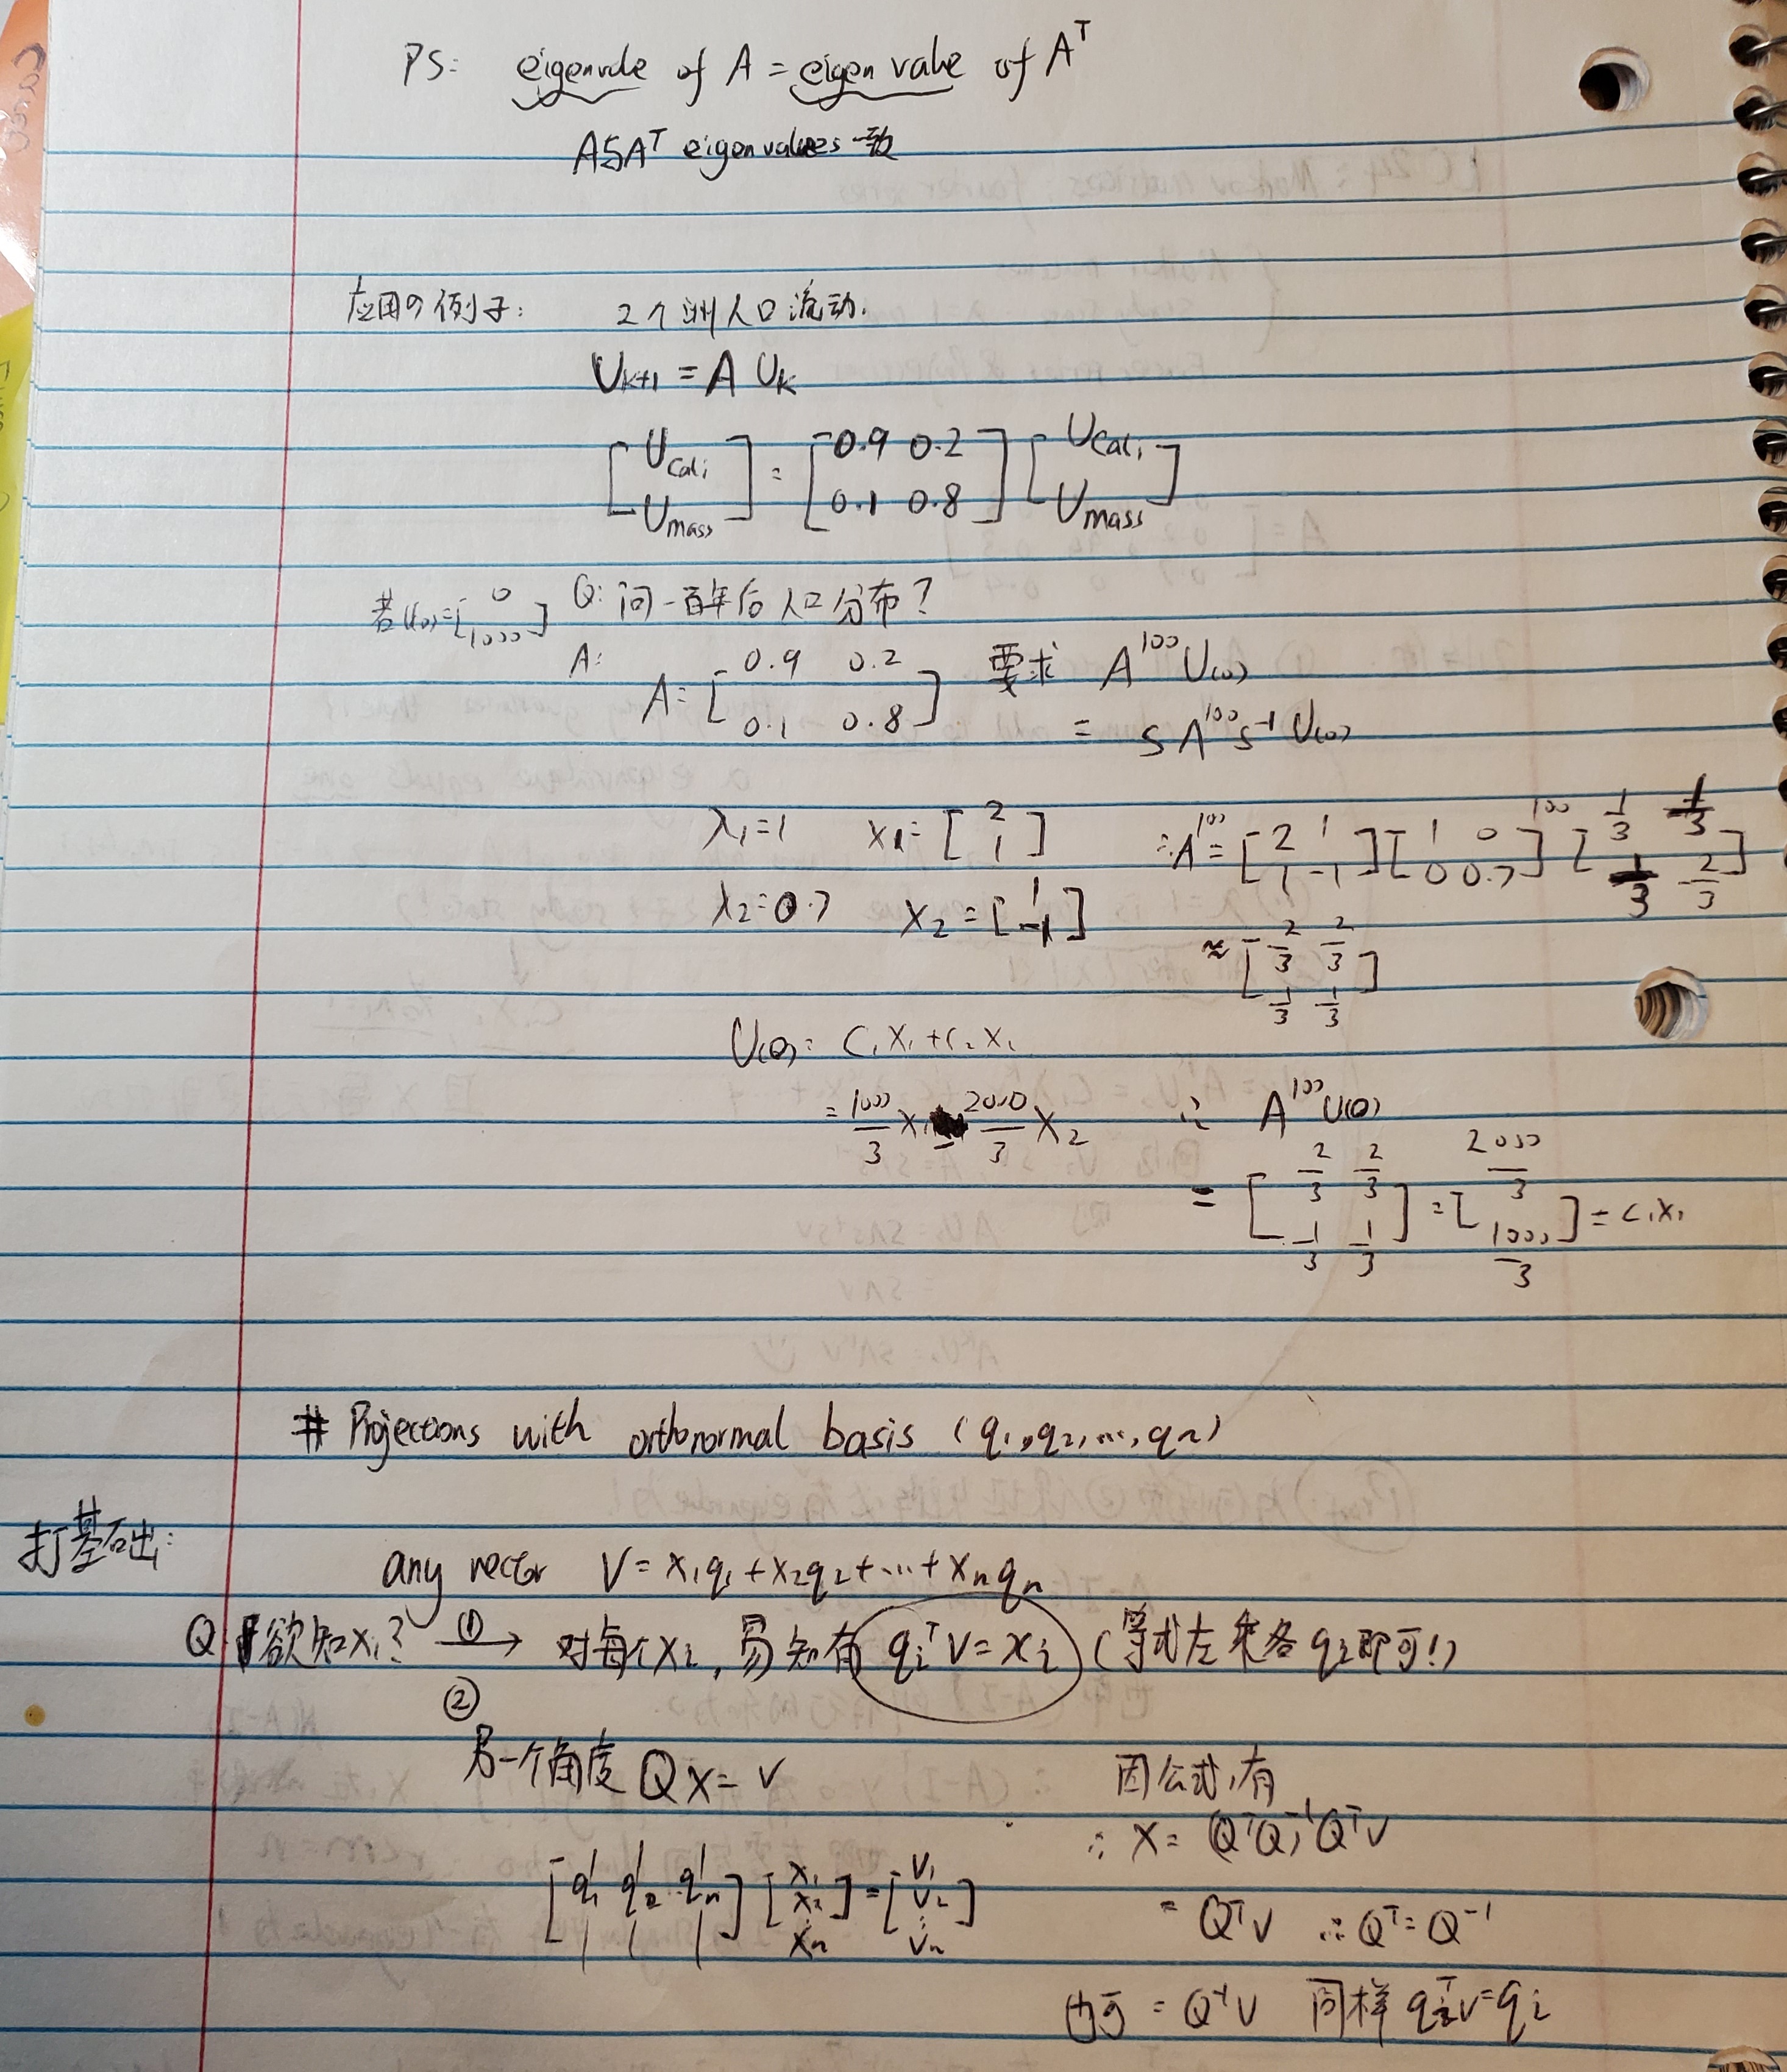 PS: eigenvalue of A = eigenvalue of Aᵀ
A与Aᵀ eigenvalues 一致
应用の例子: 2个洲人口流动.
U_{k+1} = A U_k
[U_Cali; U_mass] = [0.9 0.2; 0.1 0.8] [U_Cali; U_mass]
若U(0)=[0; 1000] Q: 问一百年后人口分布?
A: A=[0.9 0.2; 0.1 0.8] 要求 A¹⁰⁰U(0)
= SΛ¹⁰⁰S⁻¹U(0)
λ₁=1 x₁=[2; 1] ∴A¹⁰⁰=[2 1; 1 -1][1 0; 0 0.7]¹⁰⁰[1/3 1/3; 1/3 -2/3]
λ₂=0.7 x₂=[1; -1] ≈[2/3 2/3; 1/3 1/3]
U(0)= C₁X₁+C₂X₂
= 1000/3 X₁ - 2000/3 X₂ ∴ A¹⁰⁰U(0)
= [2/3 2/3; 1/3 1/3] = [2000/3; 1000/3] = C₁X₁
# Projections with orthonormal basis (q₁,q₂,...,qn)
打基础:
any vector V = x₁q₁+x₂q₂+...+xnqn
Q 欲知x₁? ①→ 对每个xᵢ, 易知有 qᵢᵀV=xᵢ (等式左乘各qᵢ即可!)
②
另一个角度 Qx=v 因公式,有
∴ X=(QᵀQ)⁻¹Qᵀv
[q₁ q₂ ... qn][x₁; x₂; ⋮; xn]=[v₁; v₂; ⋮; vn] = Qᵀv ∴Qᵀ=Q⁻¹
也可 = Q⁻¹v 同样 qᵢᵀv=qᵢ